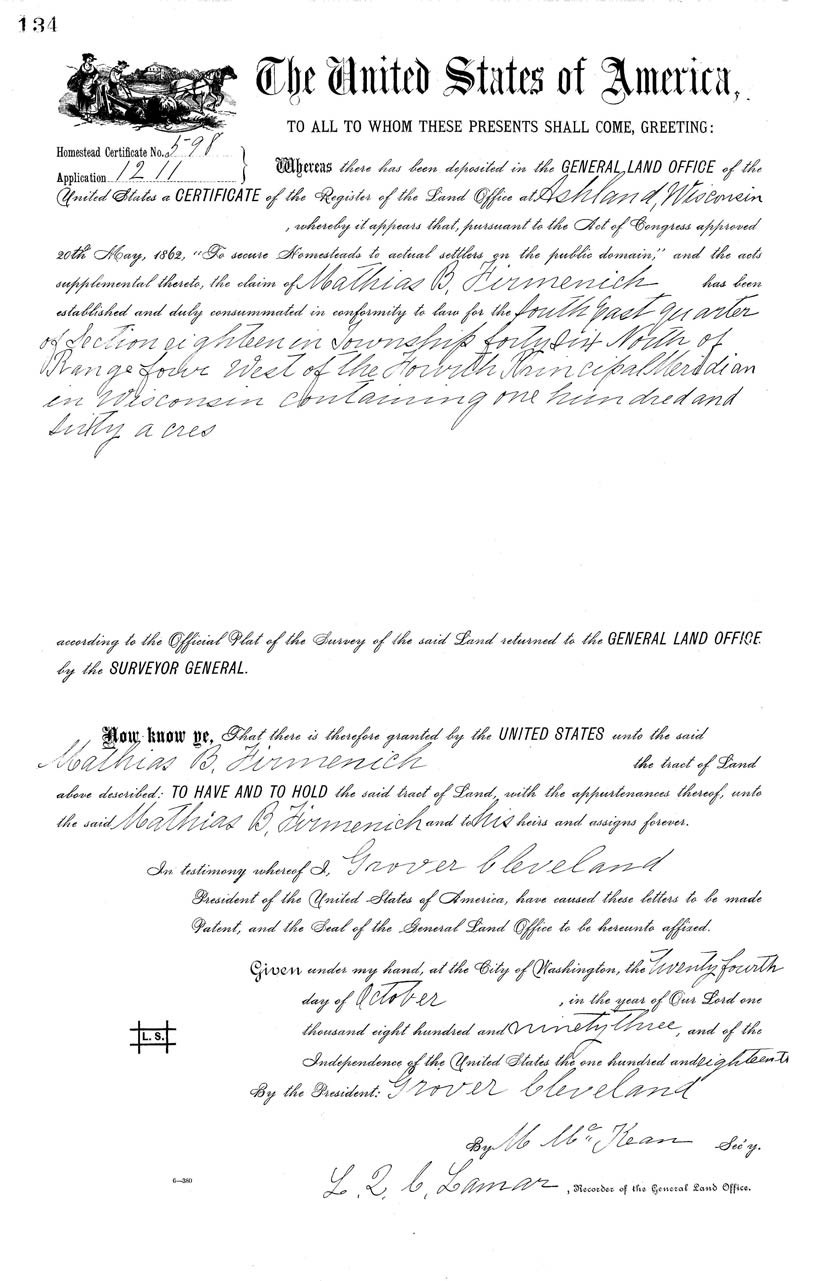 134
The United States of America,
TO ALL TO WHOM THESE PRESENTS SHALL COME, GREETING:
Homestead Certificate No. 598
Application 1211
Whereas there has been deposited in the GENERAL LAND OFFICE of the
United States a CERTIFICATE of the Register of the Land Office at Ashland, Wisconsin
, whereby it appears that, pursuant to the Act of Congress approved
20th May, 1862, "To secure Homesteads to actual settlers on the public domain," and the acts
supplemental thereto, the claim of Mathias B. Firmenich has been
established and duly consummated in conformity to law for the South East quarter
of Section eighteen in Township forty six North of
Range four West of the Fourth Principal Meridian
in Wisconsin containing one hundred and
sixty acres
according to the Official Plat of the Survey of the said Land returned to the GENERAL LAND OFFICE
by the SURVEYOR GENERAL.
Now know ye, That there is therefore granted by the UNITED STATES unto the said
Mathias B. Firmenich the tract of Land
above described: TO HAVE AND TO HOLD the said tract of Land, with the appurtenances thereof, unto
the said Mathias B. Firmenich and to his heirs and assigns forever.
In testimony whereof I, Grover Cleveland
President of the United States of America, have caused these letters to be made
Patent, and the Seal of the General Land Office to be hereunto affixed.
Given under my hand, at the City of Washington, the twenty fourth
day of October, in the year of Our Lord one
thousand eight hundred and ninety three, and of the
Independence of the United States the one hundred and eighteenth
L. S.
By the President: Grover Cleveland
By M McKean Sec'y.
6—380
L. Q. C. Lamar, Recorder of the General Land Office.